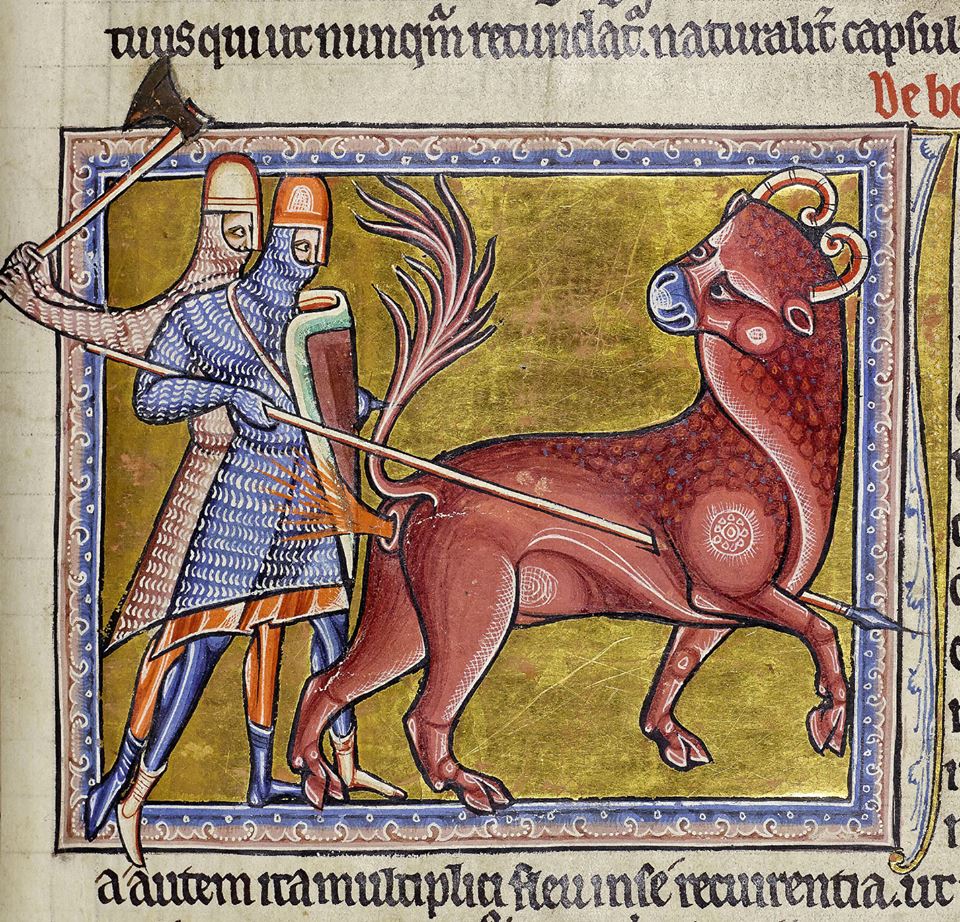 qui ut nunq̃m retundat̃. naturalit̃ capsul
De bo
a autem ita multiplici flexu in se recurrentia. ut